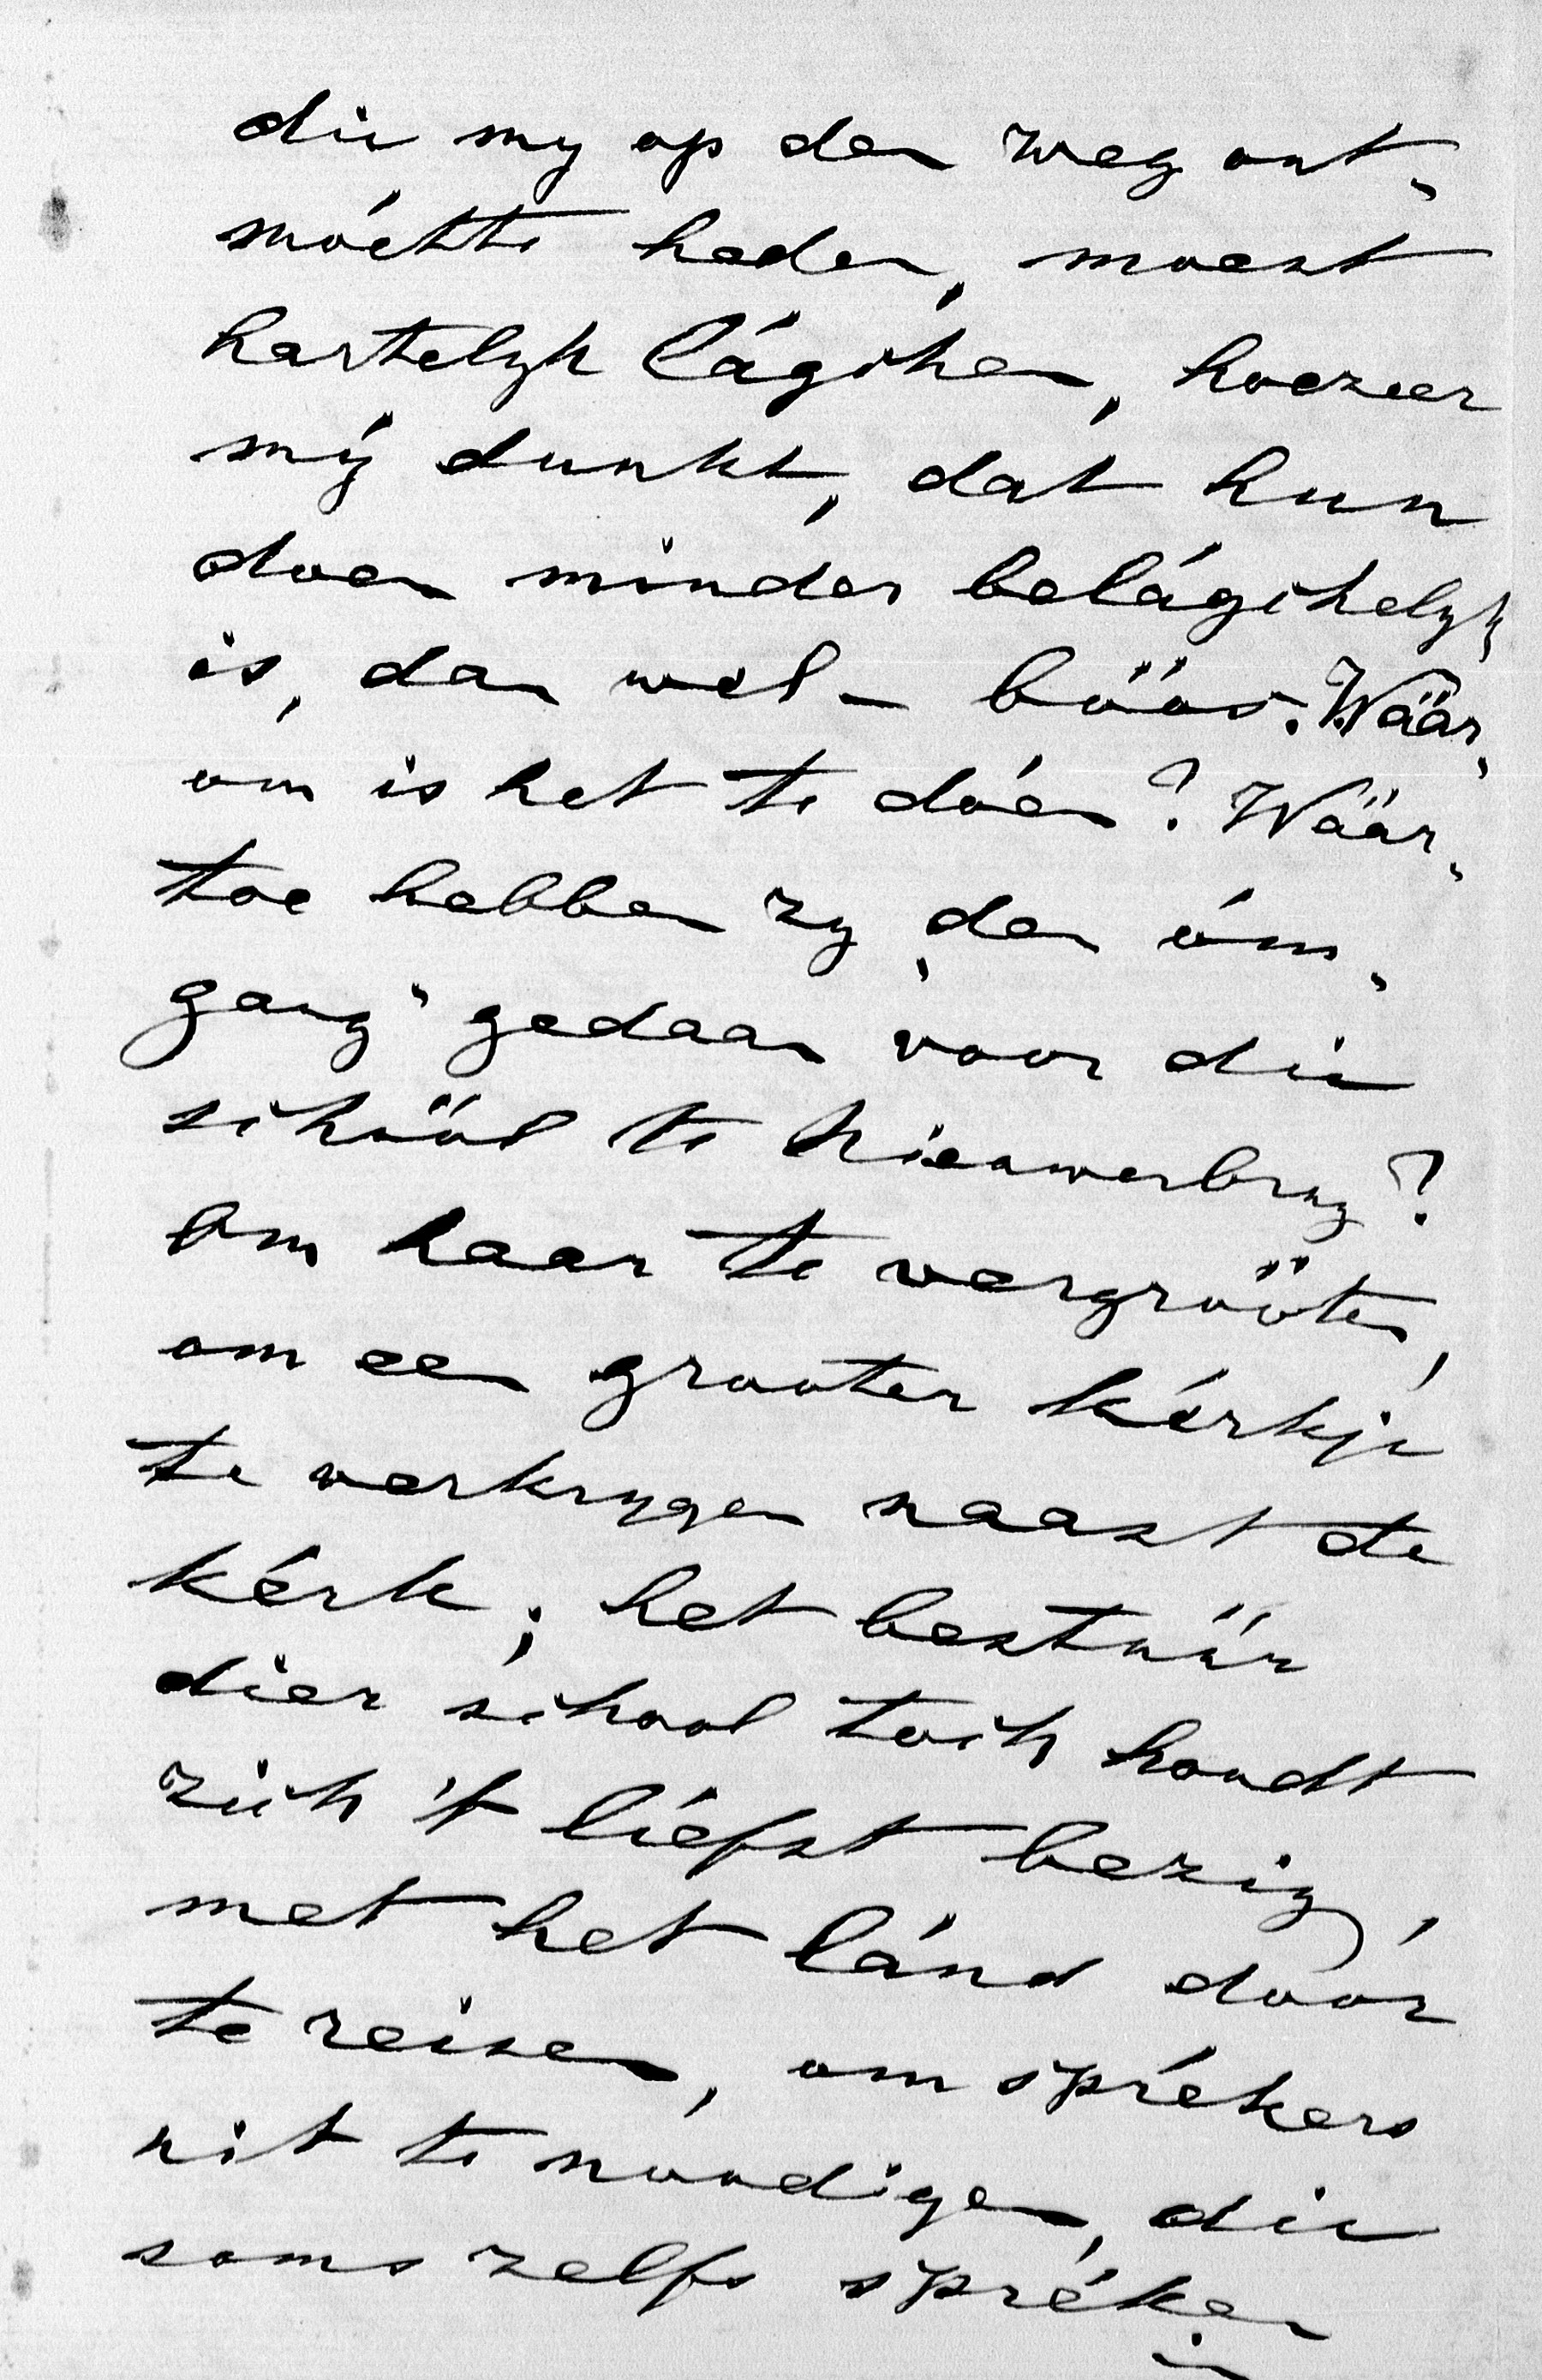 die my op den weg ont-
móétte heden, moest
hartelyk láĝchen, hoezeer
mý dunkt, dat hun
doen minder belágchelyk
is, dan wel – böös. Wäär-
om is het te dóen? Wäär-
toe hebben zy „den óm-
gang" gedaan voor die
schööl te Nieuwerbrug?
Om haar te vergrööten,
om een grooter kérkje
te verkrygen naast de
kérk; het bestüür
dier school toch houdt
zich 't liéfst bezig,
met het lánd dóór
te reisen, om sprékers
uit te noodigen, die
soms zelfs spréken